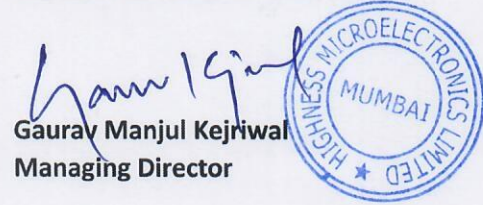 Gaurav Manjul Kejriwal
Managing Director
HIGHNESS MICROELECTRONICS LIMITED
MUMBAI